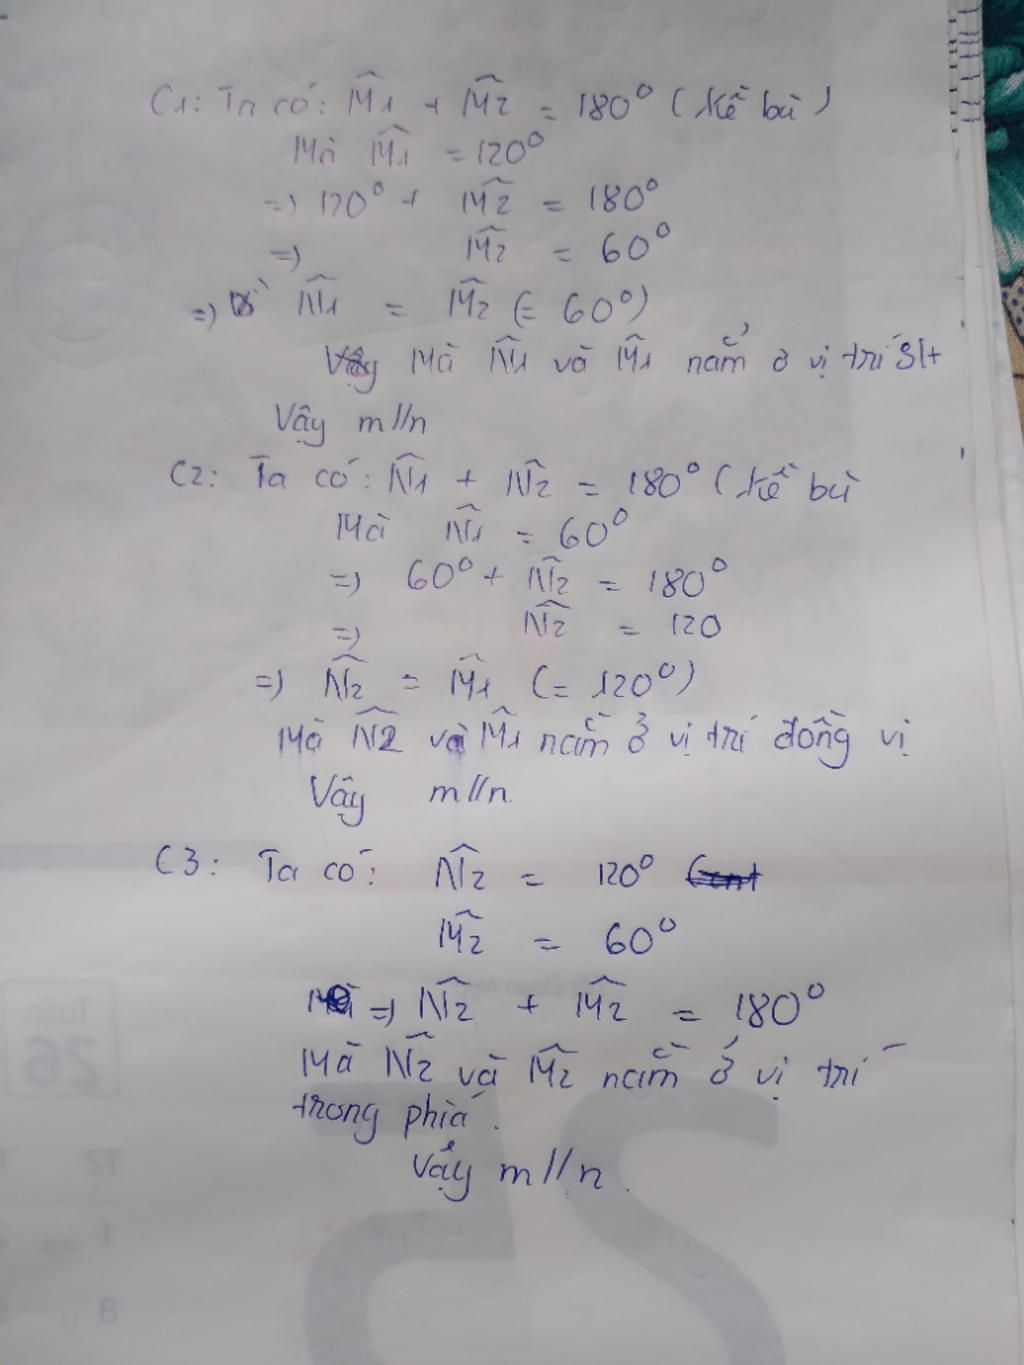 C1: Ta có: M̂1 + M̂2 = 180° (kề bù)
Mà M̂1 = 120°
=) 120° + M̂2 = 180°
=) M̂2 = 60°
=) N̂1 = M̂2 (= 60°)
Mà N̂1 và M̂1 nằm ở vị trí slt
Vậy m//n
C2: Ta có: N̂1 + N̂2 = 180° (kề bù
Mà N̂1 = 60°
=) 60° + N̂2 = 180°
=) N̂2 = 120
=) N̂2 = M̂1 (= 120°)
Mà N̂2 và M̂1 nằm ở vị trí đồng vị
Vậy m//n.
C3: Ta có: N̂2 = 120°
M̂2 = 60°
=) N̂2 + M̂2 = 180°
Mà N̂2 và M̂2 nằm ở vị trí
trong phiá.
Vậy m//n.
Tuần
26
25
T2
1
8